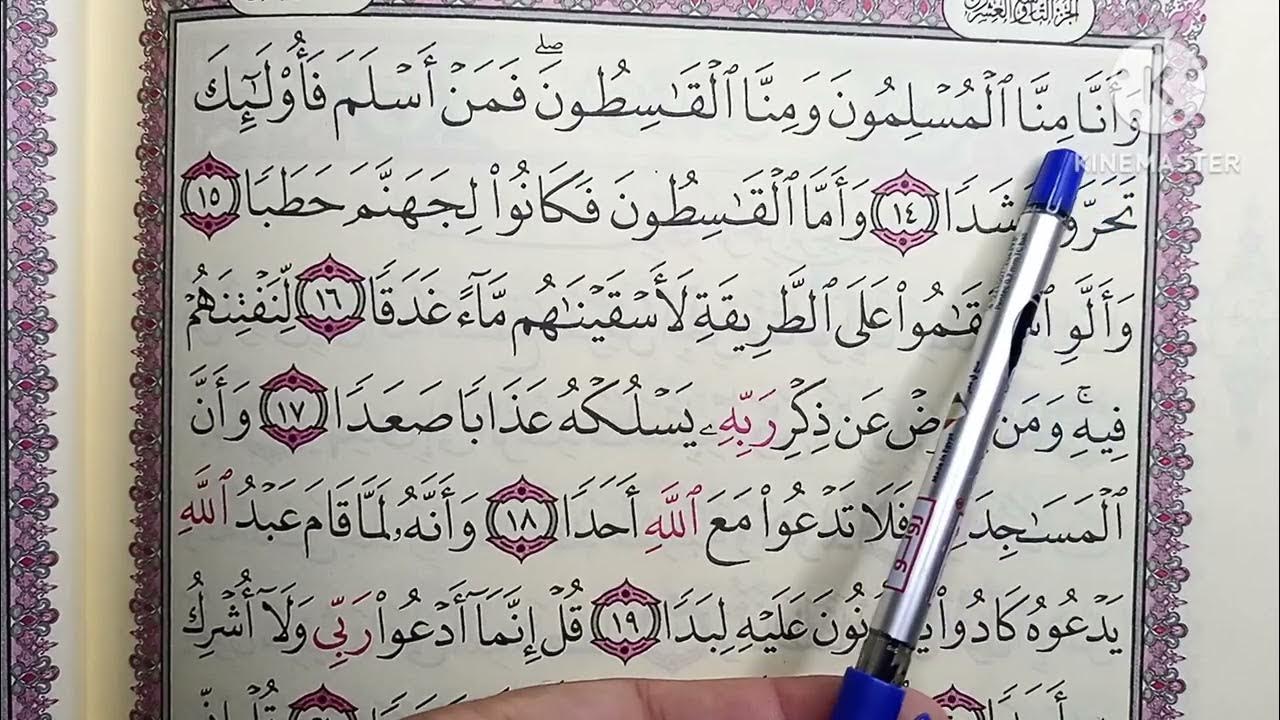 الجزء التاسع والعشرون
وَأَنَّا مِنَّا ٱلْمُسْلِمُونَ وَمِنَّا ٱلْقَٰسِطُونَۖ فَمَنْ أَسْلَمَ فَأُو۟لَٰٓئِكَ
KINEMASTER
تَحَرَّوْا۟ رَشَدًا ١٤ وَأَمَّا ٱلْقَٰسِطُونَ فَكَانُوا۟ لِجَهَنَّمَ حَطَبًا ١٥
وَأَلَّوِ ٱسْتَقَٰمُوا۟ عَلَى ٱلطَّرِيقَةِ لَأَسْقَيْنَٰهُم مَّآءً غَدَقًا ١٦ لِّنَفْتِنَهُمْ
فِيهِۚ وَمَن يُعْرِضْ عَن ذِكْرِ رَبِّهِۦ يَسْلُكْهُ عَذَابًا صَعَدًا ١٧ وَأَنَّ
ٱلْمَسَٰجِدَ لِلَّهِ فَلَا تَدْعُوا۟ مَعَ ٱللَّهِ أَحَدًا ١٨ وَأَنَّهُۥ لَمَّا قَامَ عَبْدُ ٱللَّهِ
يَدْعُوهُ كَادُوا۟ يَكُونُونَ عَلَيْهِ لِبَدًا ١٩ قُلْ إِنَّمَآ أَدْعُوا۟ رَبِّى وَلَآ أُشْرِكُ